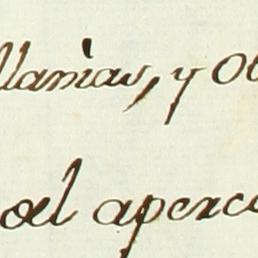 llanias, y Ob
del aperci